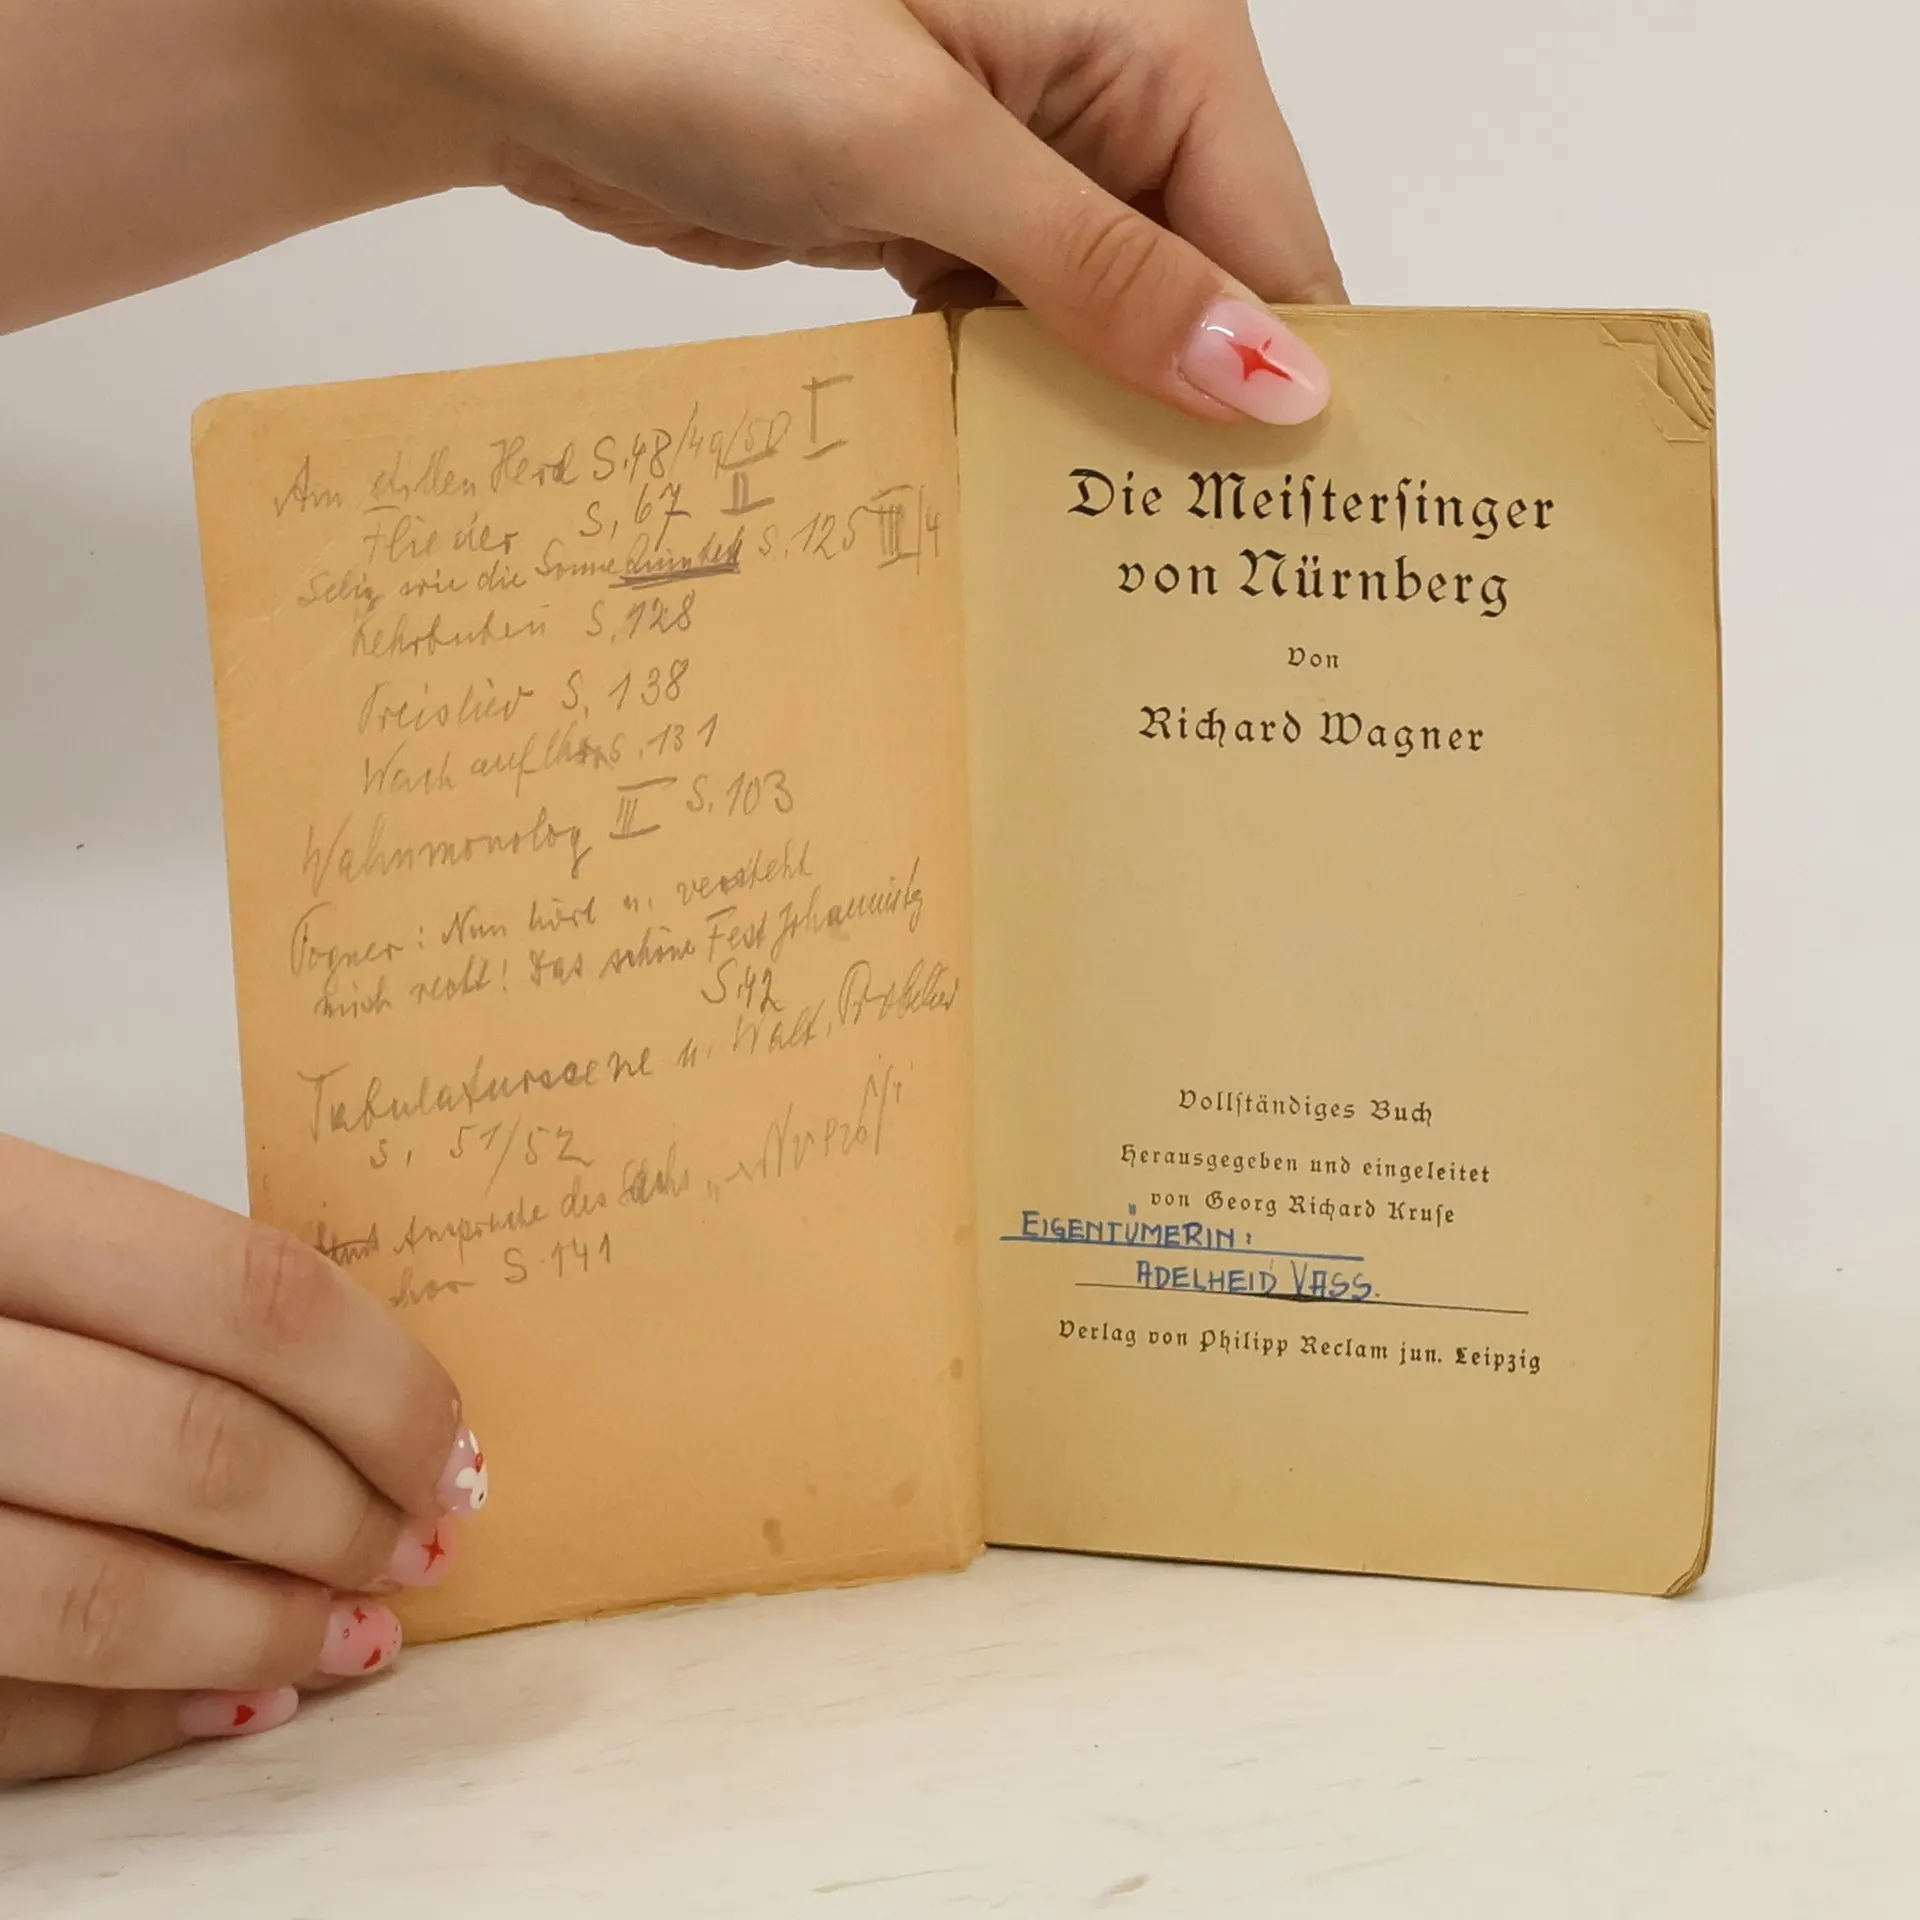 Am stillen Herd S.48/49/50 I
Flieder S. 67 II
Selig wie die Sonne Quintett S. 125 III/4
Lehrbuben S. 128
Preislied S. 138
Wach auf Chor S. 131
Wahnmonolog III S. 103
Pogner: Nun hört u. versteht
mich recht! Das schöne Fest Johannistg
S.42
Tabulaturscene u. Walt. Probelied
S. 51/52
Ansprache des Sachs
chor S. 141
Die Meiſterſinger
von Nürnberg
Von
Richard Wagner
Vollſtändiges Buch
Herausgegeben und eingeleitet
von Georg Richard Kruſe
EIGENTÜMERIN:
ADELHEID VASS.
Verlag von Philipp Reclam jun. Leipzig